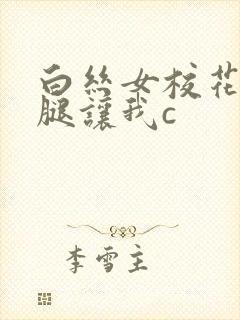 白丝女校花
腿讓我c
李雪主